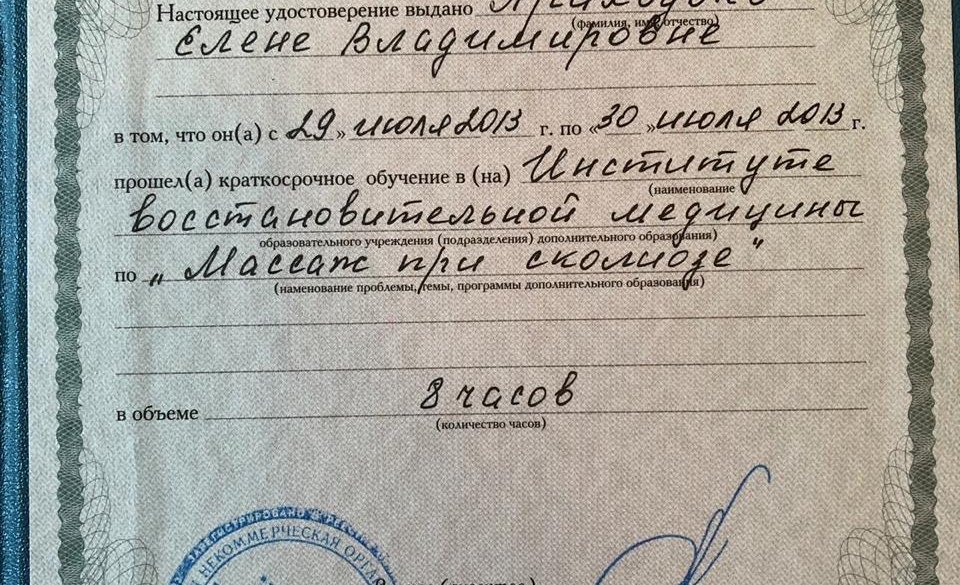 Настоящее удостоверение выдано Приходько
(фамилия, имя, отчество)
Елене Владимировне
в том, что он(а) с 29 » июля 2013 г. по « 30 » июля 2013 г.
прошел(а) краткосрочное обучение в (на) Институте
(наименование
восстановительной медицины
образовательного учреждения (подразделения) дополнительного образования)
по „ Массаж при сколиозе "
(наименование проблемы, темы, программы дополнительного образования)
в объеме 8 часов
(количество часов)
ЗАРЕГИСТРИРОВАНО В РЕЕСТРЕ
НЕКОММЕРЧЕСКАЯ